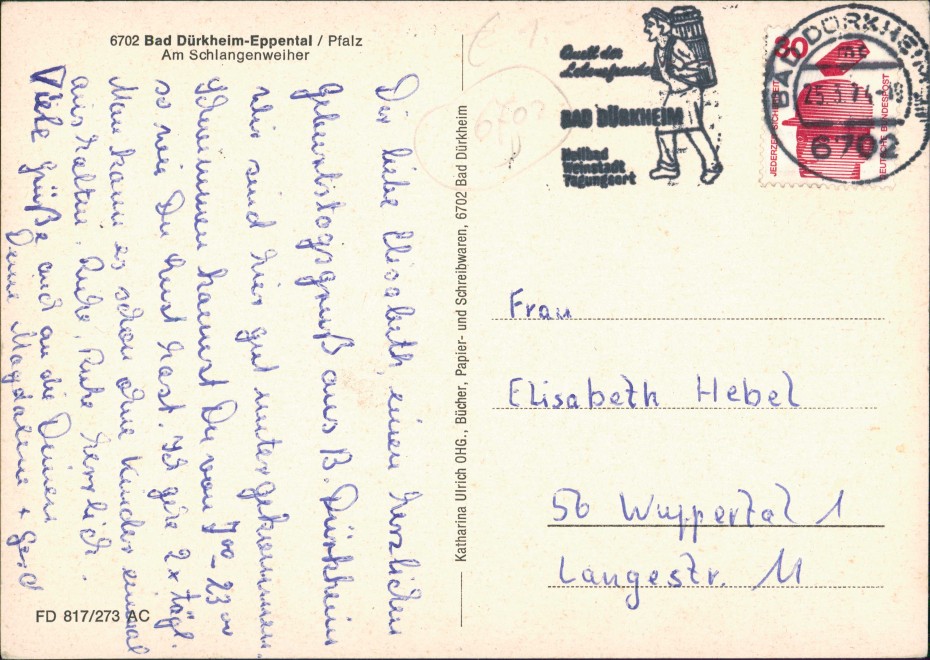 6702 Bad Dürkheim-Eppental / Pfalz
Am Schlangenweiher
Dir liebe Elisabeth, einen herzlichen
Geburtstagsgruß aus B. Dürkheim
wir sind hier gut untergekommen.
Schwimmen kannst Du von 7⁰⁰-23⁰⁰
so wie Du Lust hast. Ich gehe 2x tägl.
Man kann es schon ohne Kinder einmal
aushalten. Ruhe, Ruhe herrlich.
Viele Grüße auch an die Deinen
Deine Magdalene + Gerd
FD 817/273 AC
Katharina Ulrich OHG., Bücher, Papier- und Schreibwaren, 6702 Bad Dürkheim
6702
Quell der
Lebensfreude
BAD DÜRKHEIM
Heilbad
Weinstadt
Tagungsort
BAD DÜRKHEIM
6702
JEDERZEIT SICHERHEIT
DEUTSCHE BUNDESPOST
Frau
Elisabeth Hebel
56 Wuppertal 1
Langestr. 11